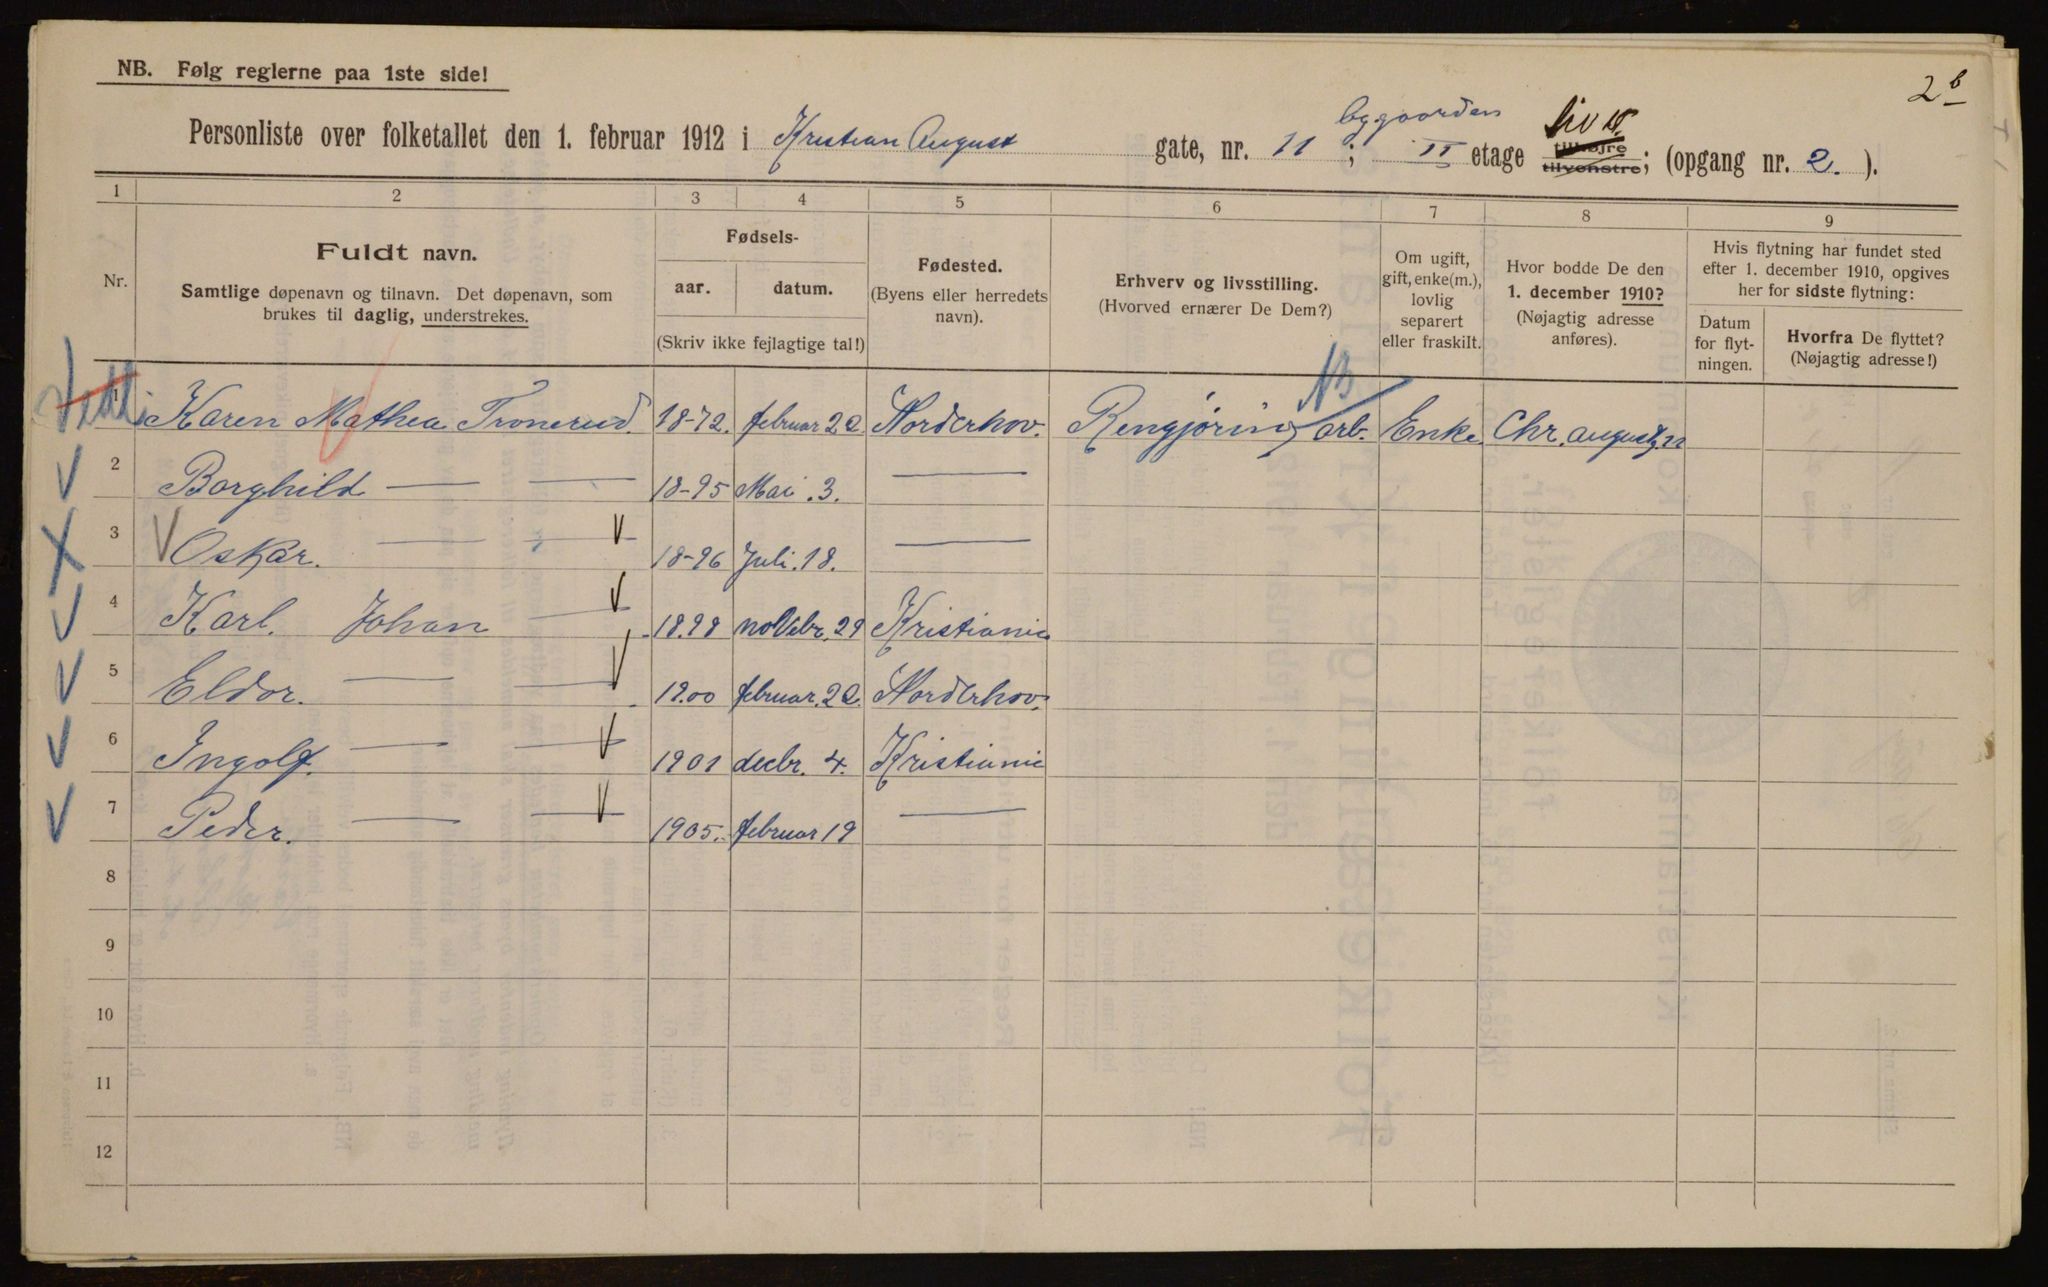 NB. Følg reglerne paa 1ste side!
2b
bygaarden
Personliste over folketallet den 1. februar 1912 i Kristian August gate, nr. 11; II etage tilhøjre tilvenstre; (opgang nr. 2. ).
1 2 3 4 5 6 7 8 9
Nr.
Fuldt navn.
Samtlige døpenavn og tilnavn. Det døpenavn, som
brukes til daglig, understrekes.
Fødsels-
aar. datum.
(Skriv ikke fejlagtige tal!)
Fødested.
(Byens eller herredets
navn).
Erhverv og livsstilling.
(Hvorved ernærer De Dem?)
Om ugift,
gift, enke(m.),
lovlig
separert
eller fraskilt.
Hvor bodde De den
1. december 1910?
(Nøjagtig adresse
anføres).
Hvis flytning har fundet sted
efter 1. december 1910, opgives
her for sidste flytning:
Datum
for flyt-
ningen.
Hvorfra De flyttet?
(Nøjagtig adresse!)
NB
1 Karen Mathea Tronerud 18-72. februar 22 Norderhov. Rengjøring arb. Enke Chr. augustg. 11
2 Borghild — — 18-95 Mai. 3. —
3 Oskar. — — 18-96 Juli. 18. —
4 Karl. Johan — 18.98 novebr. 29 Kristiania
5 Eldor. — — 19.00 februar. 22. Norderhov.
6 Ingolf. — — 1901 decbr. 4. Kristiania
7 Peder. — — 1905. februar 19 —
8
9
10
11
12